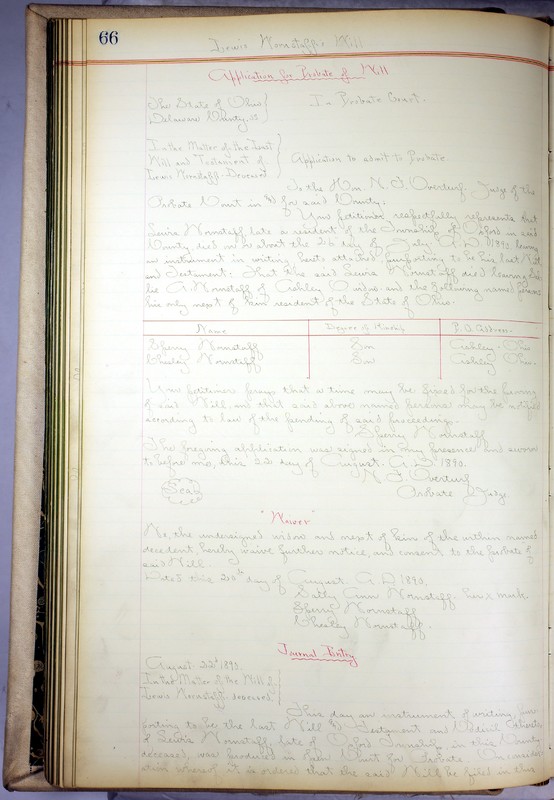 66
Lewis Wornstaff's Will
Application for Probate of Will
The State of Ohio
Delaware County, ss
In Probate Court.
In the Matter of the Last
Will and Testament of
Lewis Wornstaff Deceased
Application to admit to Probate.
To the Hon. N. F. Overturf Judge of the
Probate Court in & for said County;
Your petitioner respectfully represents that
Lewis Wornstaff late a resident of the Township of Oxford in said
County, died on or about the 26 day of July A.D. 1890, leaving
an instrument in writing hereto attached purporting to be his last Will
and Testament: That the said Lewis Wornstaff died leaving
A Wornstaff of Ashley O widow and the following named persons
his only next of kin resident of the State of Ohio.
Name Degree of Kinship P.O. Address.
Sherry Wornstaff Son Ashley Ohio
Wesley Wornstaff Son Ashley Ohio.
Your petitioner prays that a time may be fixed for the proving
of said Will, and that said above named persons may be notified
according to law of the pending of said proceedings.
Sherry Wornstaff
The foregoing application was signed in my presence and sworn
to before me, this 22 day of August. A.D. 1890.
N. F. Overturf
Probate Judge.
Seal
"Waiver"
We, the undersigned widow and next of kin of the within named
decedent, hereby waive further notice, and consent to the probate of
said Will.
Dated this 20th day of August. A.D. 1890.
Sally Ann Wornstaff. her x mark.
Sherry Wornstaff
Wesley Wornstaff.
Journal Entry
August 22d 1890.
In the Matter of the Will of
Lewis Wornstaff deceased
This day an instrument of writing, pur-
porting to be the last Will & Testament
of Lewis Wornstaff late of Oxford Township, in this County
deceased, was produced in open Court for Probate. On consider-
ation whereof it is ordered that the said Will be filed in this